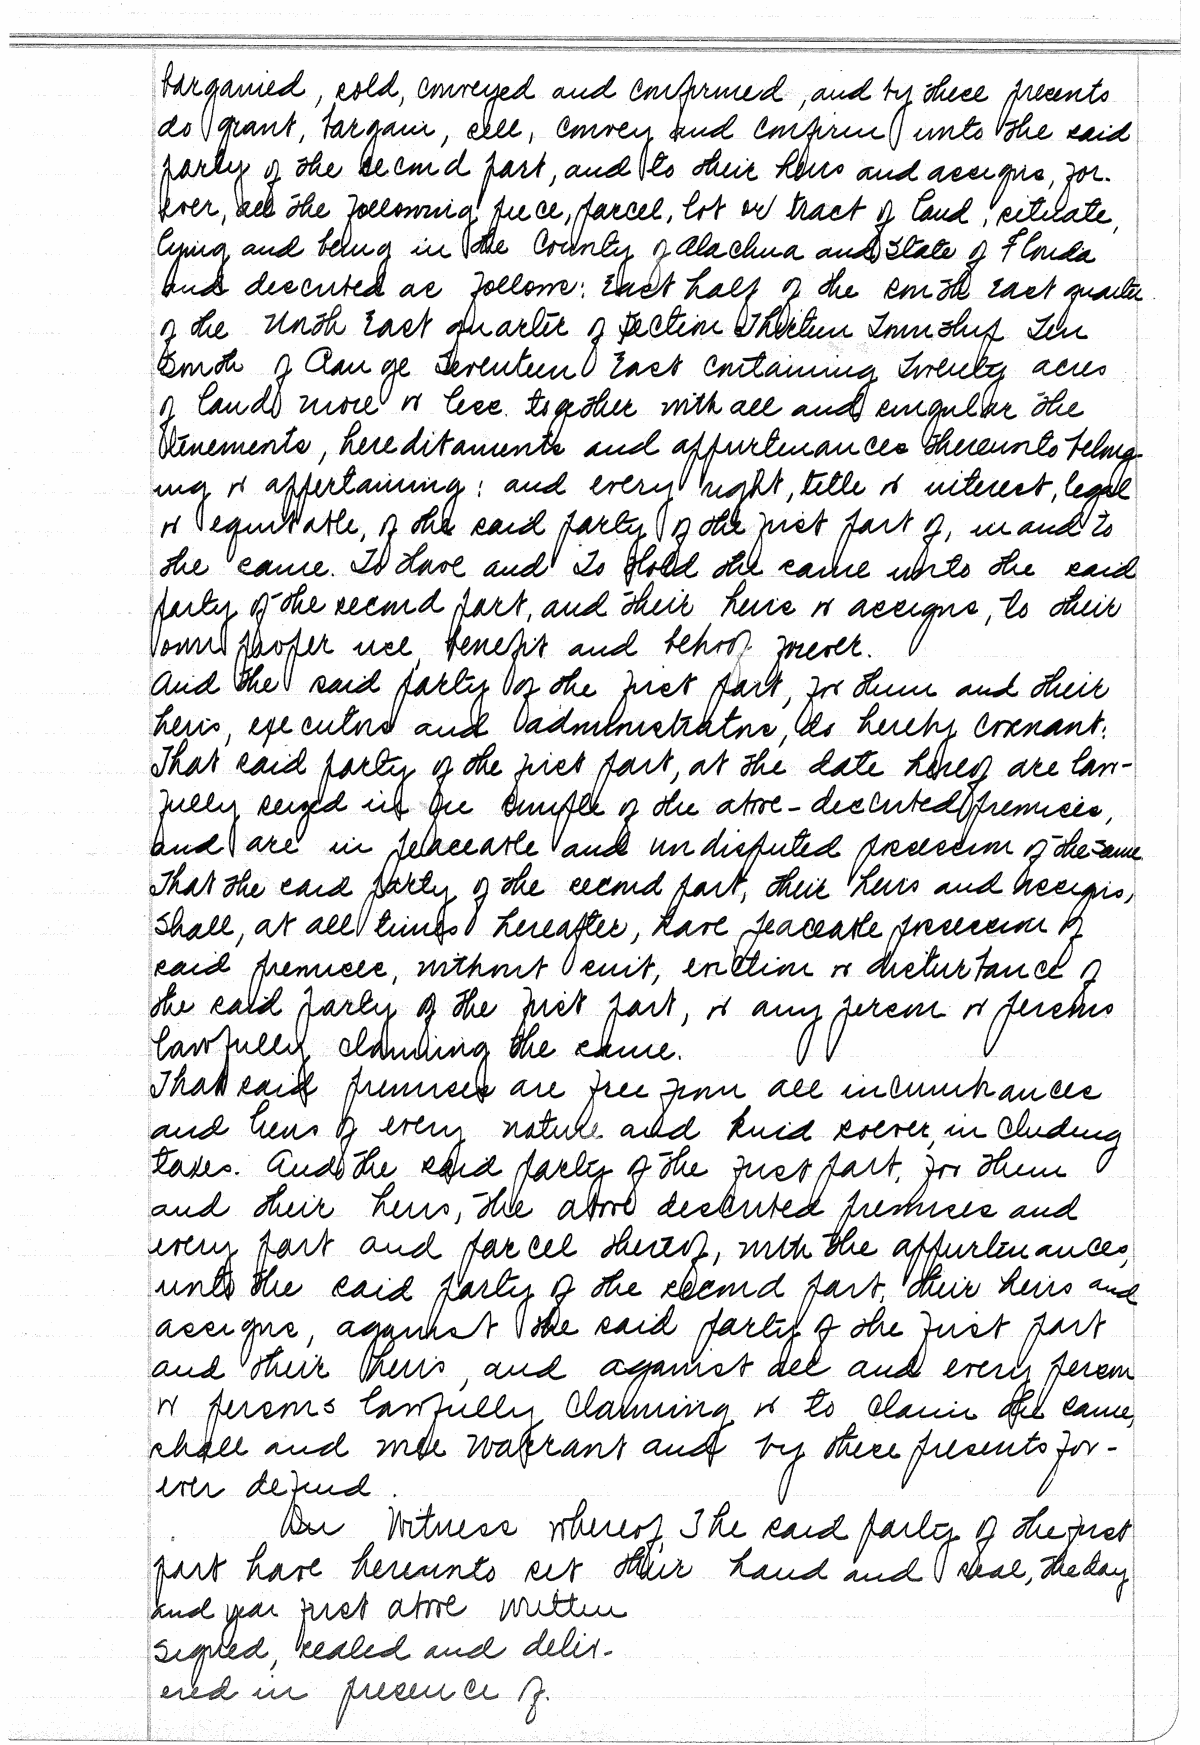 bargained, sold, conveyed and confirmed, and by these presents
do grant, bargain, sell, convey and confirm unto the said
party of the second part, and to their heirs and assigns, for-
ever, all the following piece, parcel, lot or tract of land, situate,
lying and being in the County of Alachua and State of Florida
and described as follows: East half of the South East quarter
of the North East quarter of Section Thirteen Township Ten
South of Range Seventeen East containing Twenty acres
of land more or less. together with all and singular the
tenements, hereditaments and appurtenances thereunto belong-
ing or appertaining: and every right, title or interest, legal
or equitable, of the said party of the first part of, in and to
the same. To Have and To Hold the same unto the said
party of the second part, and their heirs or assigns, to their
own proper use, benefit and behoof forever.
And the said party of the first part, for them and their
heirs, executors and administrators, do hereby covenant:
That said party of the first part, at the date hereof are law-
fully seized in fee simple of the above-described premises,
and are in peaceable and undisputed possession of the same
That the said party of the second part, their heirs and assigns,
shall, at all times hereafter, have peaceable possession of
said premises, without suit, eviction or disturbance of
the said party of the first part, or any person or persons
lawfully claiming the same.
That said premises are free from all incumbrances
and liens of every nature and kind soever, including
taxes. And the said party of the first part, for them
and their heirs, the above described premises and
every part and parcel thereof, with the appurtenances,
unto the said party of the second part, their heirs and
assigns, against the said party of the first part
and their heirs, and against all and every person
or persons lawfully claiming or to claim the same,
shall and will warrant and by these presents for-
ever defend.
In Witness whereof, The said party of the first
part have hereunto set their hand and seal, the day
and year first above written
Signed, sealed and deliv-
ered in presence of.